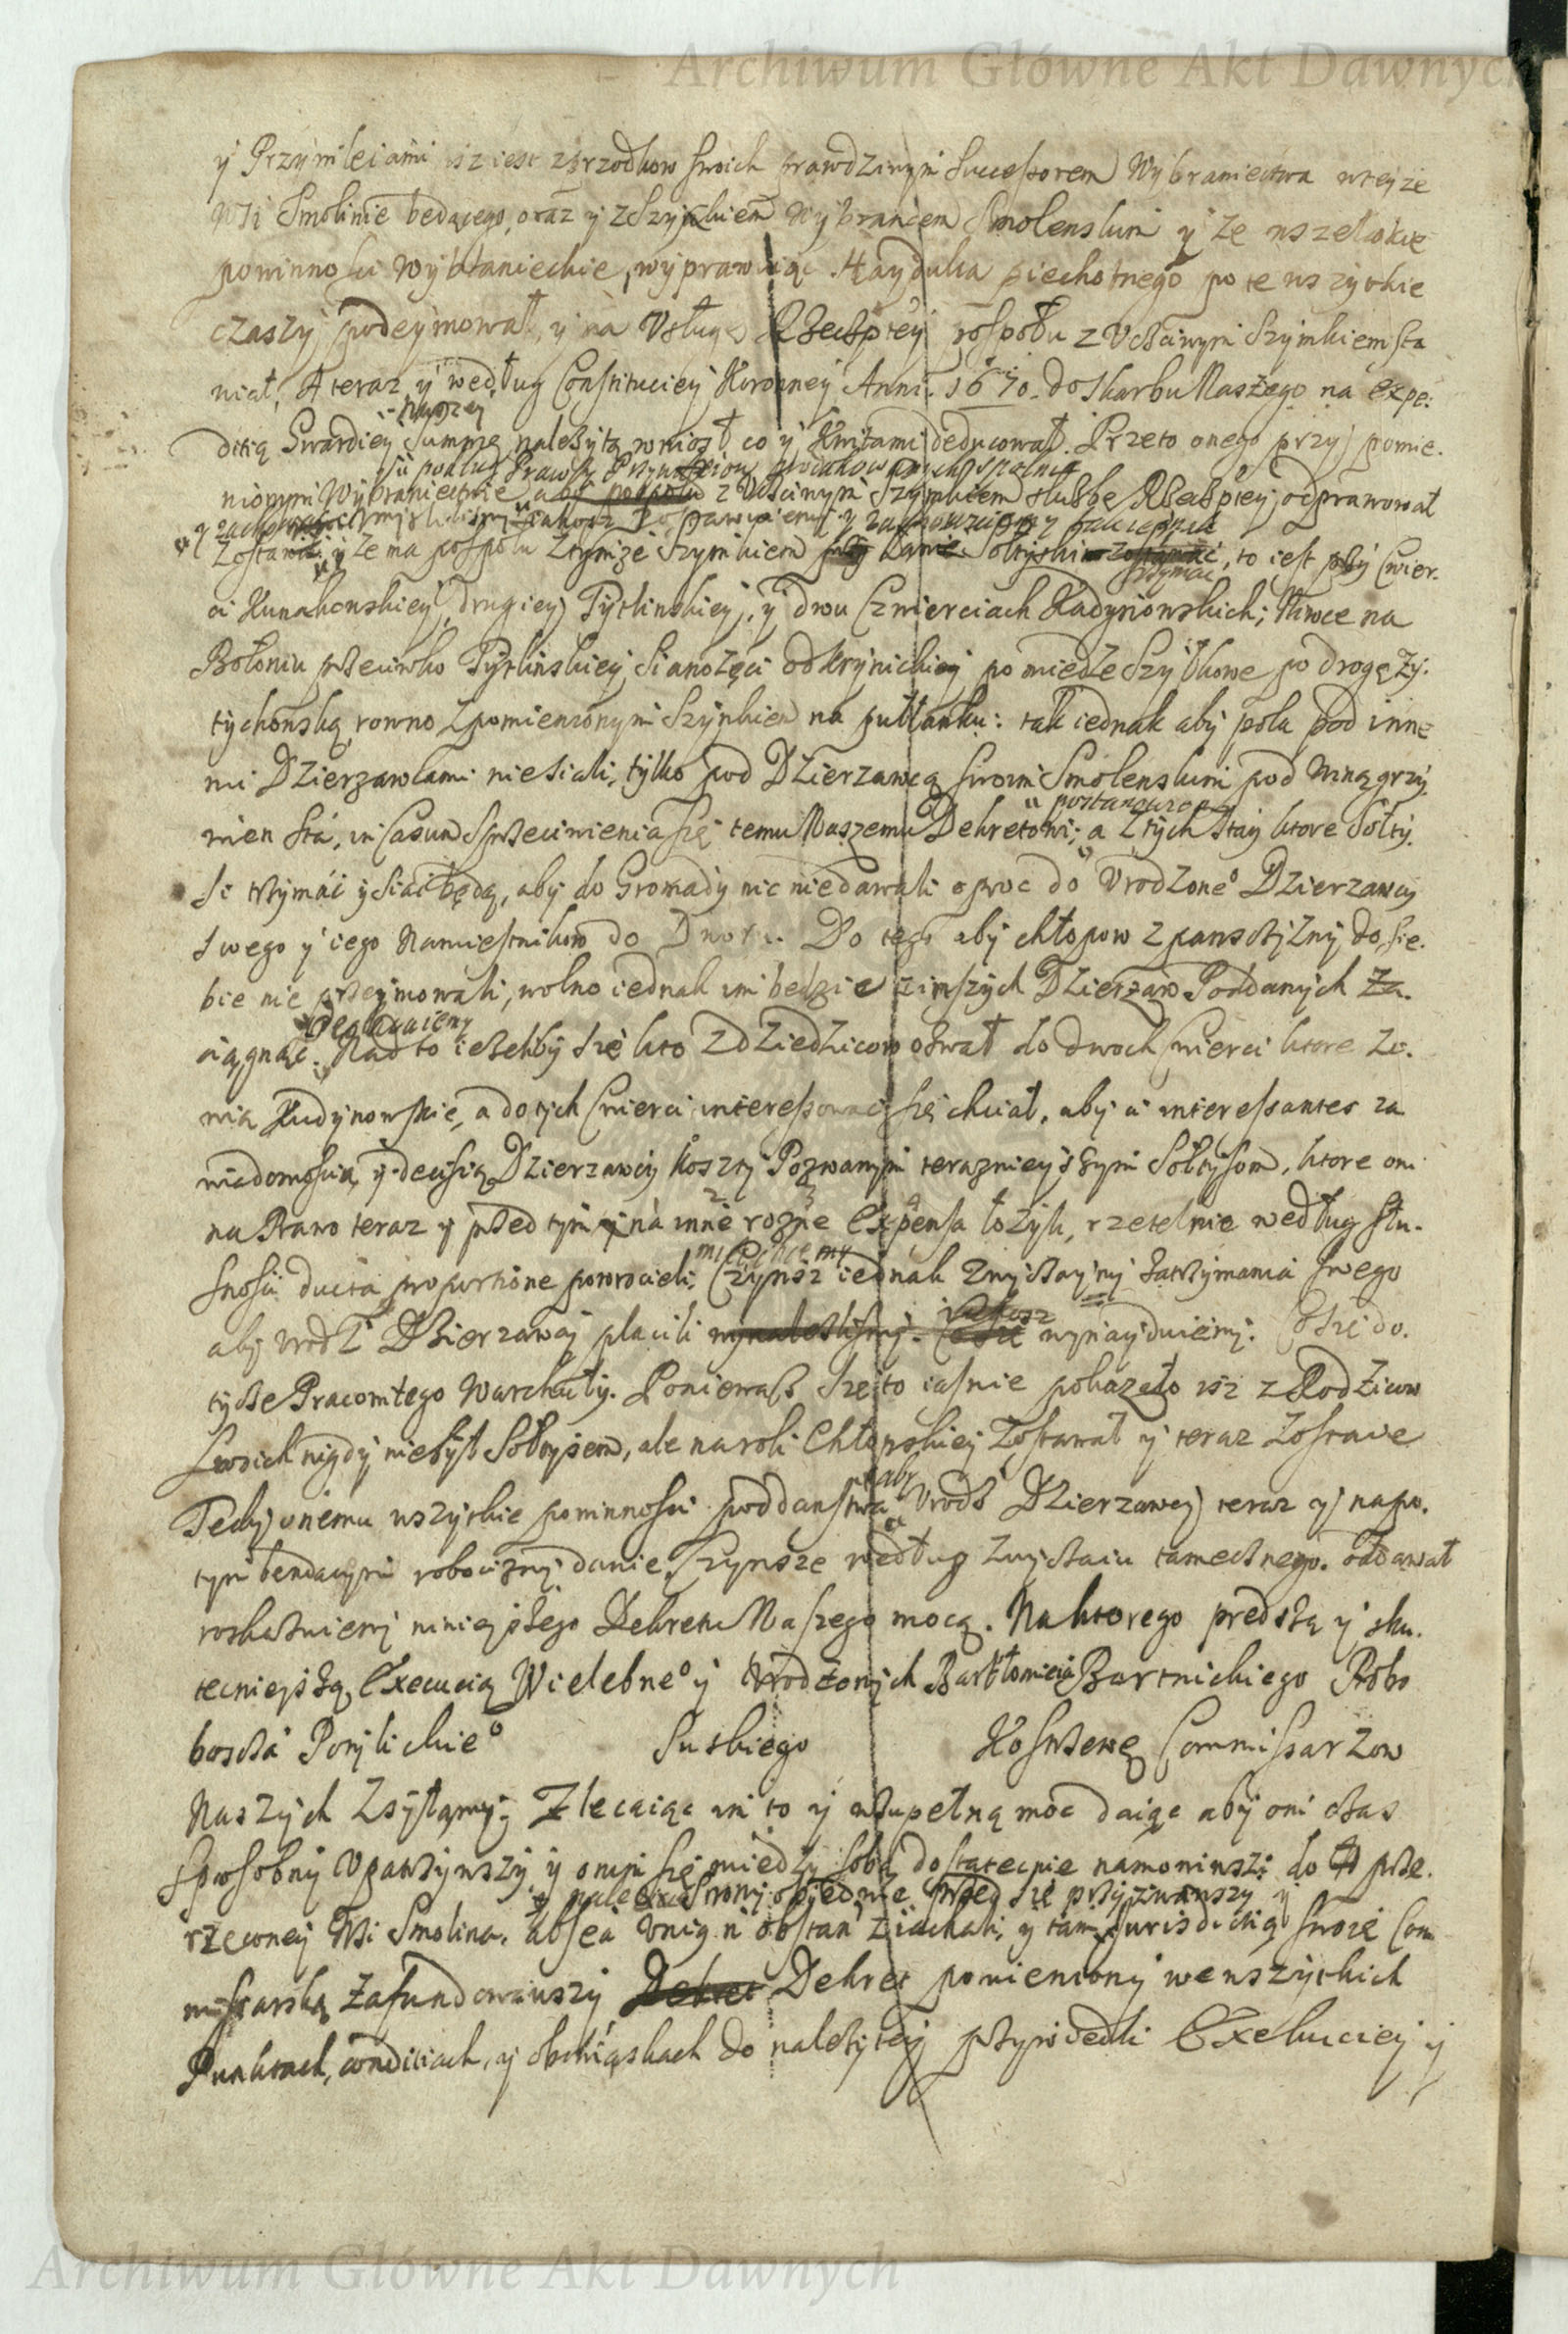 Archiwum Główne Akt Dawnych
y Przywileiami isz iest z przodkow swoich prawdziwym Successorem Wybraniectwa wteyze
Wsi Smolinie bedącego, oraz y z Szymkiem Wybrancem Smolenskim y ze wszelakie
powinnosci Wybranieckie, wyprawuiąc Hayduka piechotnego po te wszytkie
czaszy podeymował, y na Usługę Rzeczptey pospołu z Uczciwym Szymkiem sta
wiał, A teraz y według Constituciey Koronney Anni. 1670. do Skarbu Naszego na expe:
Naszey
ditią Gwardiey Summę należytą wniosł co y Kwitami deducował. Przeto onego przy pomie.
podług Prawa y Przywileiow
nionym Wybraniectwie z Uczciwym Szymkiem służbe Rzeczptey odprawował
y zachowuiemy
y ze ma pospołu z tymże Szymkiem, to iest przy Cwier.
trzymać
ci Kunakonskiey, drugiey Tyrlinskiey, y dwu Czwierciach Kadynowskich; Niwce na
Błoniu przeciwko Tyrlinskiey, Sianożęci od Krynickiey po miedze Szytkowe po drogę Ży:
tychonską rowno z pomienionym Szymkiem na pułłanku: tak iednak aby pola pod inne
mi Dzierzawcami nie siali, tylko pod Dzierzawcą swoim Smolenskim pod winą grzy
postanowieniu
wien Sta, in Casum sprzeciwienia się temu Naszemu Dekretowi; a z tych Stay ktore Sołty.
si trzymáć y siać będą, aby do Gromady nic niedawali oprocz do Urodzoneo Dzierzawcy
swego y iego Namiestnikow do Dworu. Do tego aby chłopow z panszczyzny do sie.
bie nie przeymowali, wolno iednak im bedzie z inszych Dzierzaw Poddanych za.
Deklaruiemy
ciągnąć. Nad to iezeliby się kto z Dziedzicow ozwał do dwoch Cwierci ktore zo.
wią Kudynowskie, a do tych Cwierci interessować się chciał, aby ci interessantes za
wiadomoscią y decisią Dzierzawcy koszty Pozwanym teraznieyszym Sołtysom, ktore oni
na Prawo teraz y przed tym y na inne rozne Expensa łozyli, rzetelnie według słu.
sznosci ducta proportione powrocieli; Czynsz iednak zwyczayny zatrzymania swego
aby Urodz Dzierzawcy płacili
iakosz
wynayduiemy. Co się do.
tycze Pracowitego Warchuły. Poniewasz się to iasnie pokazało isz z Rodzicow
Swoich nigdy nie był Sołtysem, ale na roli Chłopskiey zostawał y teraz zostaie
aby
Tedy onemu wszytkie powinnosci poddanstwa Urodz Dzierzawcy teraz y napo.
tym bendącym robocizny danie, Czynsze według zwyczaiu tamecznego. oddawał
roskazuiemy ninieyszego Dekretu Naszego mocą. Na ktorego prędszą y sku.
tecznieyszą Execucią Wielebneo y Urodzonych Bartłomieia Bartnickiego Probo
boszcza Poryckieo Suskiego Commissarzow
Naszych zsyłamy; Zlecaiąc im to y zupełną moc daiąc aby oni czas
Sposobny upatrzywszy y onym się miedzy sobą dostatecznie namowiwszi do prze.
Strony obiedwie przed się przyzwawszy y
rzeconey Wsi Smolina. absen unig n obstan ziachali, y tam Jurisdictią swoię Com
missarską zafundowawszy Dekret pomieniony we wszytkich
Punktach, conditiach, y obowiąskach do nalezytey przywiedli Exekuciey y
Archiwum Główne Akt Dawnych